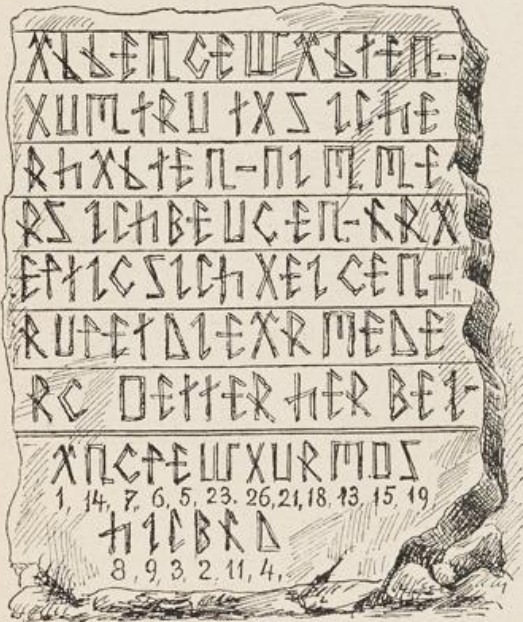 ALLEN GEWALTEN-
ZUMTRU TZS ICHE
RHALTEN-NIMME
RS ICHBEUGEN-KRA
EFTIG SICH ZEIGEN-
RUFET DIEARMEDE
RG OETTER HERBEI-
A N G F E W Z U R M O S
1, 14, 7, 6, 5, 23. 26, 21, 18, 13, 15, 19
H I C B K D
8, 9, 3, 2, 11, 4,